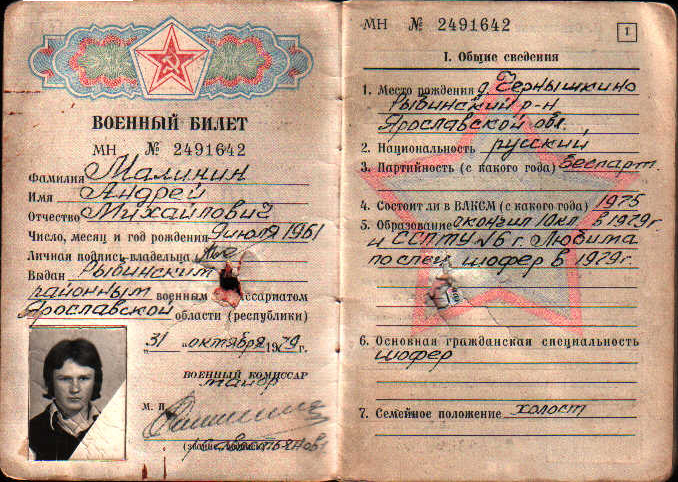 ВОЕННЫЙ БИЛЕТ
МН № 2491642
Фамилия Малинин
Имя Андрей
Отчество Михайлович
Число, месяц и год рождения 9 июля 1961
Личная подпись владельца
Выдан Рыбинским
районным военным комиссариатом
Ярославской области (республики)
„31 „ октября 1979 г.
ВОЕННЫЙ КОМИССАР
майор
М. П.
(звание, подпись)
МН № 2491642
1
I. Общие сведения
1. Место рождения д. Чернышкино
Рыбинский р-н
Ярославской обл.
2. Национальность русский
3. Партийность (с какого года) беспарт.
4. Состоит ли в ВЛКСМ (с какого года) 1975
5. Образование окончил 10 кл в 1979г
и ССПТУ №6 г. Любима
по спец. шофер в 1979г.
6. Основная гражданская специальность
шофер
7. Семейное положение холост